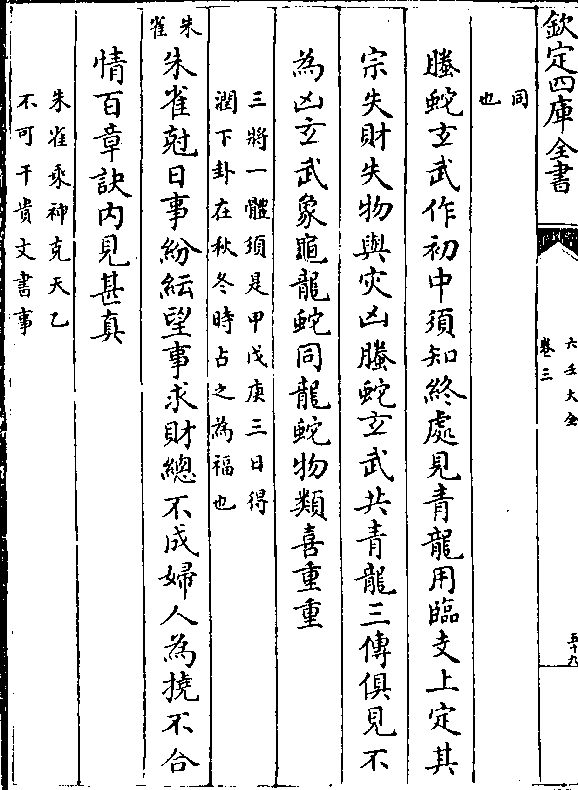 欽定四庫全書
六壬大全
卷三
五十九
同
也
螣蛇玄武作初中須知終處見青龍用臨支上定其
宗失財失物與灾凶螣蛇玄武共青龍三傳俱見不
為凶玄武象龜龍蛇同龍蛇物類喜重重
三將一體須是甲戊庚三日得
潤下卦在秋冬時占之為福也
朱
雀
朱雀尅日事紛紜望事求財總不成婦人為撓不合
情百章訣內見甚真
朱雀乘神克天乙
不可干貴文書事